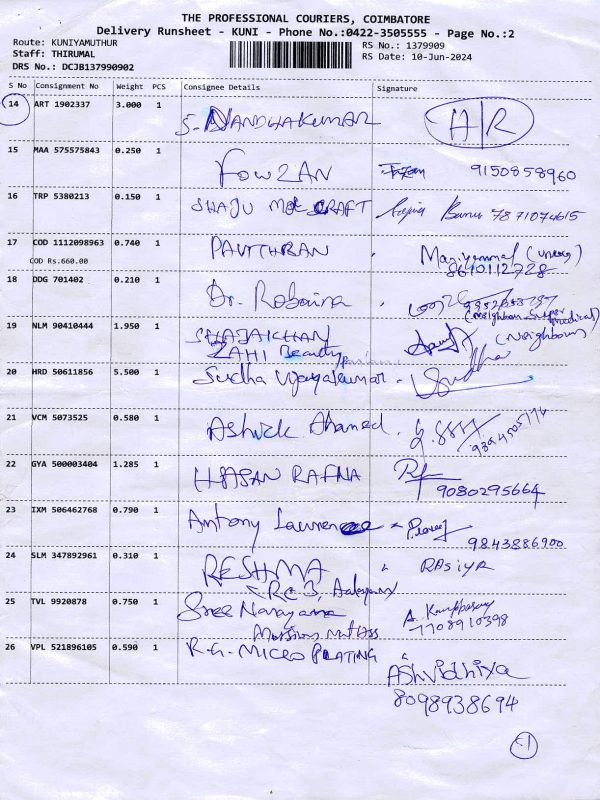 THE PROFESSIONAL COURIERS, COIMBATORE
Delivery Runsheet - KUNI - Phone No.:0422-3505555 - Page No.:2
Route: KUNIYAMUTHUR
RS No.: 1379909
Staff: THIRUMAL
RS Date: 10-Jun-2024
DRS No.: DCJB137990902
S No Consignment No Weight PCS Consignee Details Signature
14 ART 1902337 3.000 1 S. NANDHAKUMAR A/R
15 MAA 575575843 0.250 1 FOWZAN 9150858960
16 TRP 5380213 0.150 1 SHAJU CRAFT Banu 7871074615
17 COD 1112098963 0.740 1 PAVITHRAN
COD Rs.660.00 8610112728
18 DDG 701402 0.210 1 Dr. Robaina
(Neighbour Super medical)
19 NLM 90410444 1.950 1 SHAJAKHAN (Neighbour)
ZAHI Beauty
20 HRD 50611856 5.500 1 Sudha Vijayakumar Sudha
21 VCM 5073525 0.580 1 Ashick Ahamed.
22 GYA 500003404 1.285 1 HASAN RAFNA
9080295664
23 IXM 506462768 0.790 1 Antony Lawrence
9843886900
24 SLM 347892961 0.310 1 RESHMA RASiYA
25 TVL 9920878 0.750 1 Sree Narayana A.
7708910398
26 VPL 521896105 0.590 1 R.G. MICRO PLATING
ASHVidhiya
8098938694